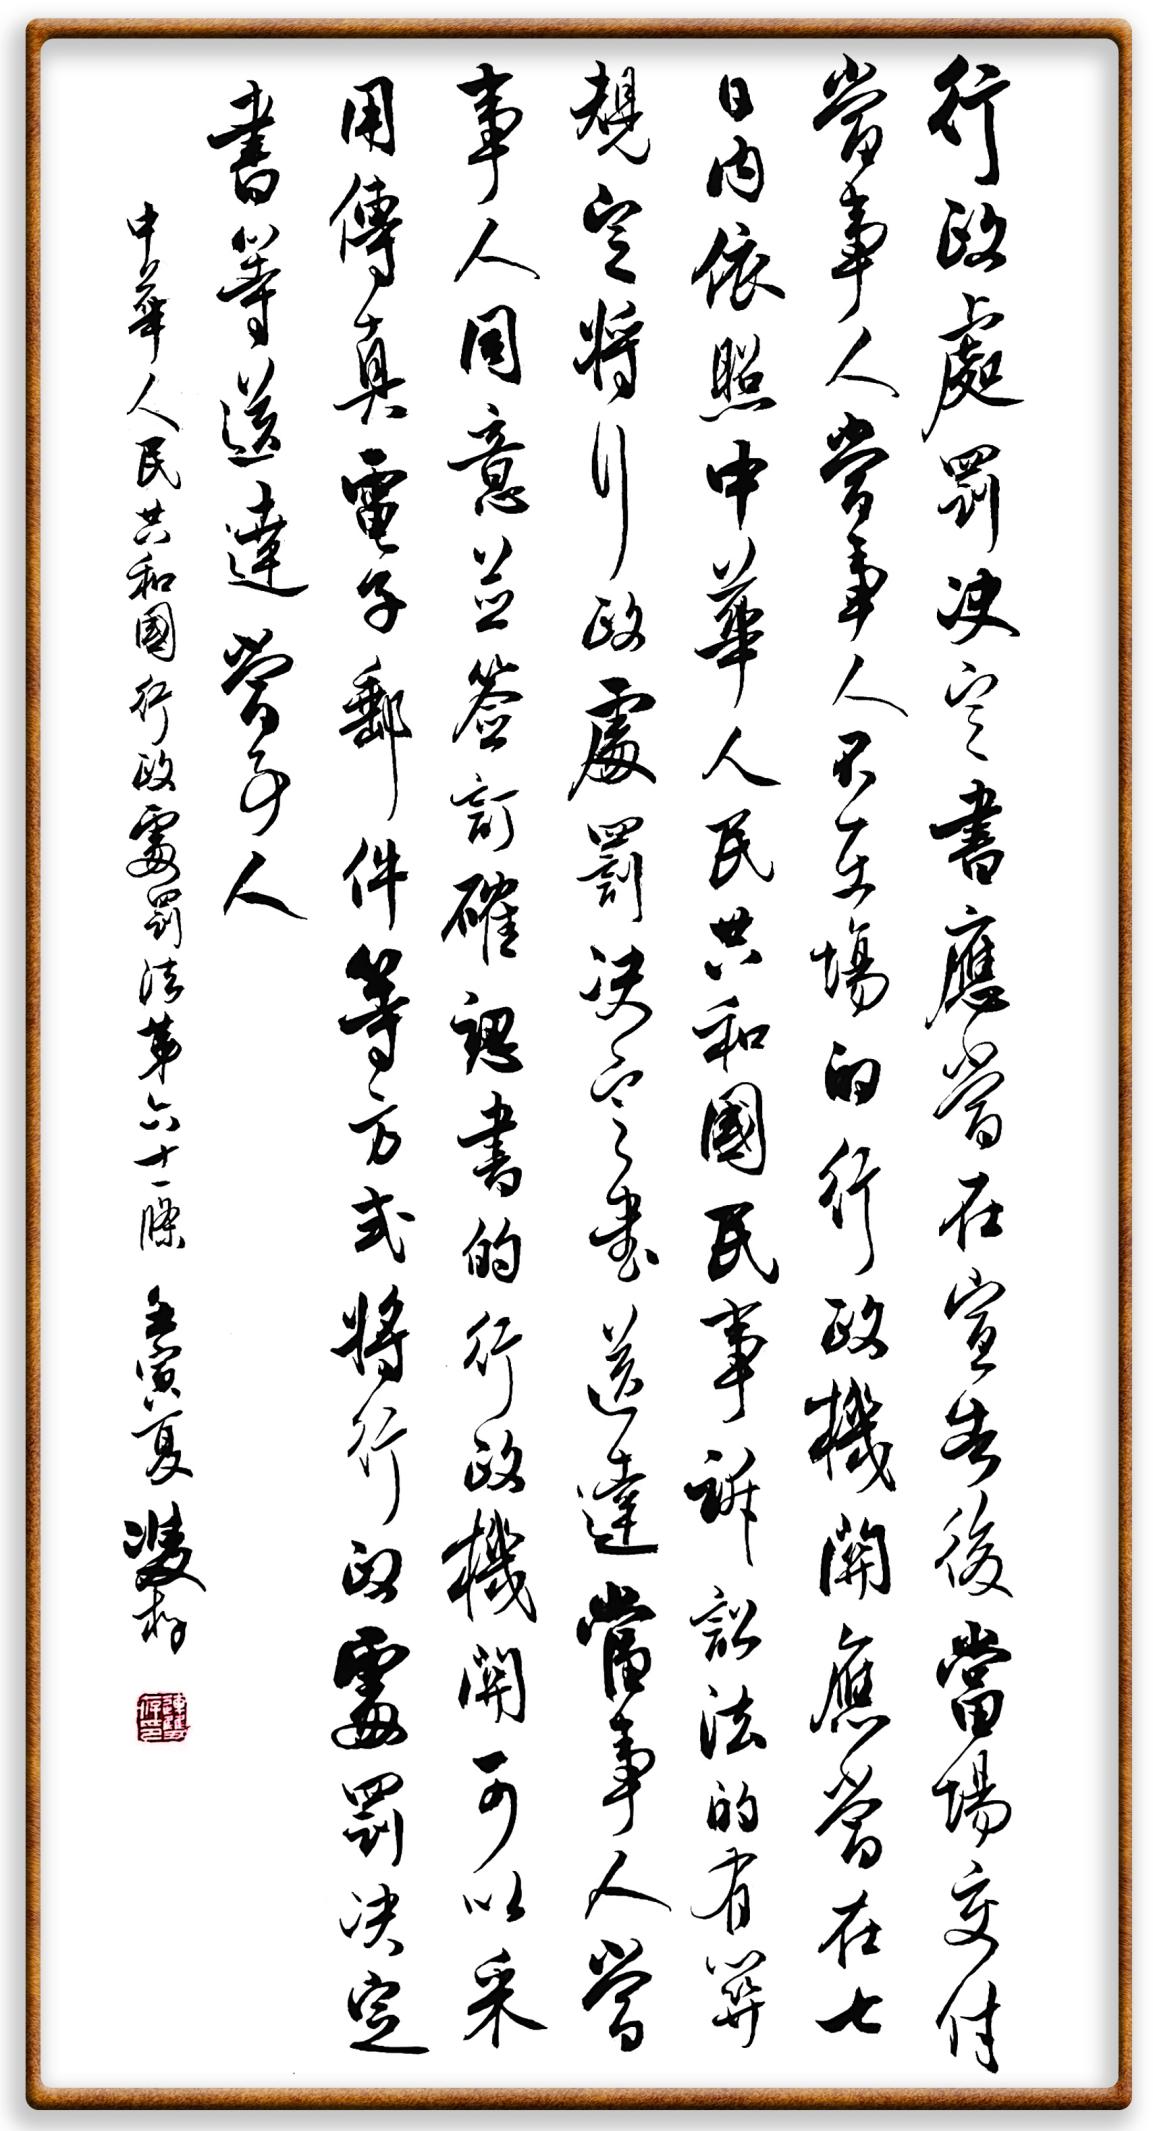 行政處罰決定書應當在宣告後當場交付
當事人當事人不在場的行政機關應當在七
日内依照中華人民共和國民事訴訟法的有關
規定將行政處罰決定書送達當事人當
事人同意並簽訂確認書的行政機關可以采
用傳真電子郵件等方式將行政處罰決定
書等送達當事人
中華人民共和國行政處罰法第六十一條 壬寅夏